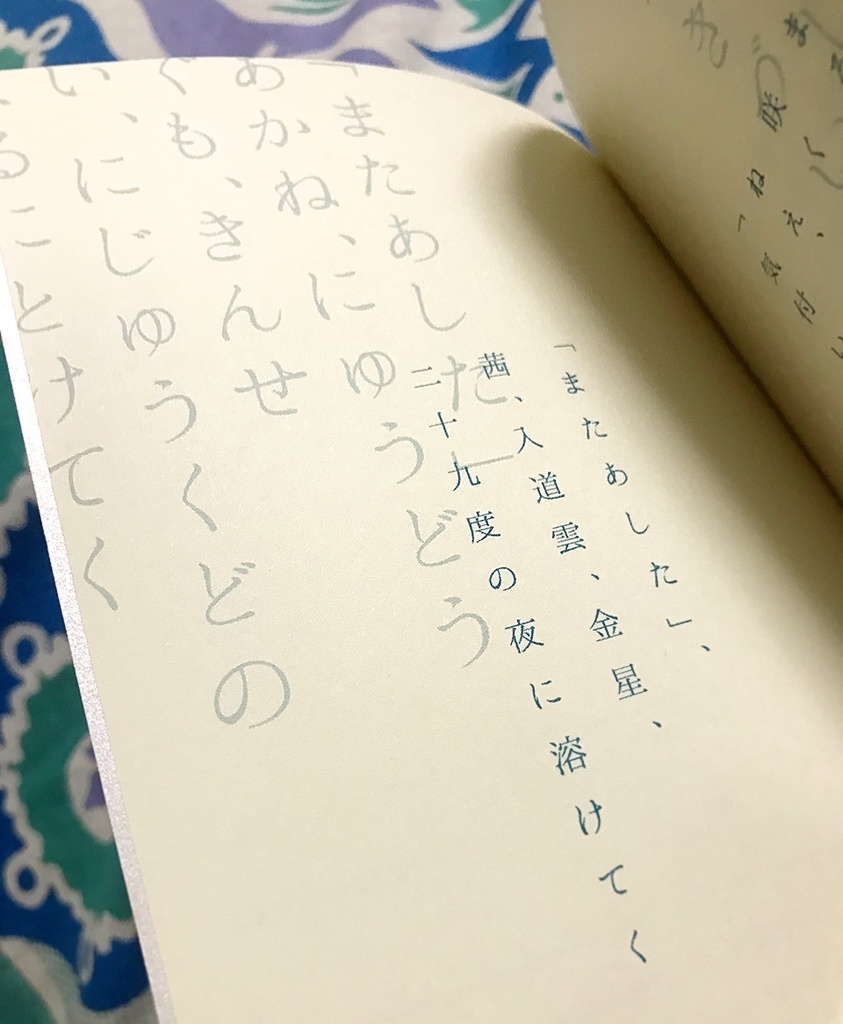 まる
咲く
ねえ、
「気付い
「またあした」、
茜、入道雲、金星、
二十九度の夜に溶けてく
「またあした」
あかね、にゅうどう
ぐも、きんせ
い、にじゅうくどの
とけてく